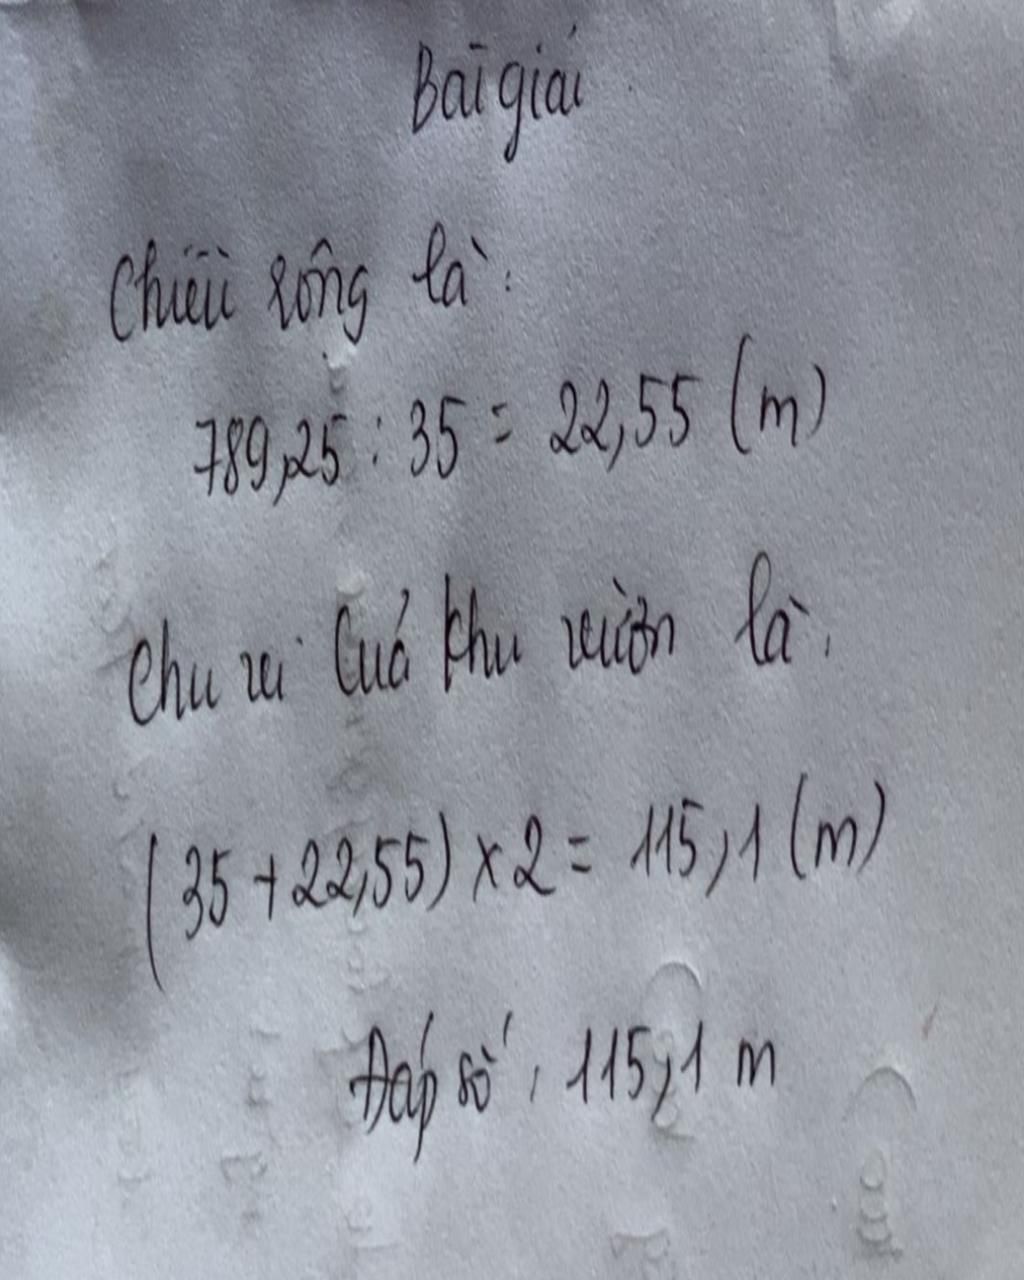 Bài giải
Chiều rộng là:
789,25 : 35 = 22,55 (m)
Chu vi của khu vườn là:
(35 + 22,55) x 2 = 115,1 (m)
Đáp số: 115,1 m